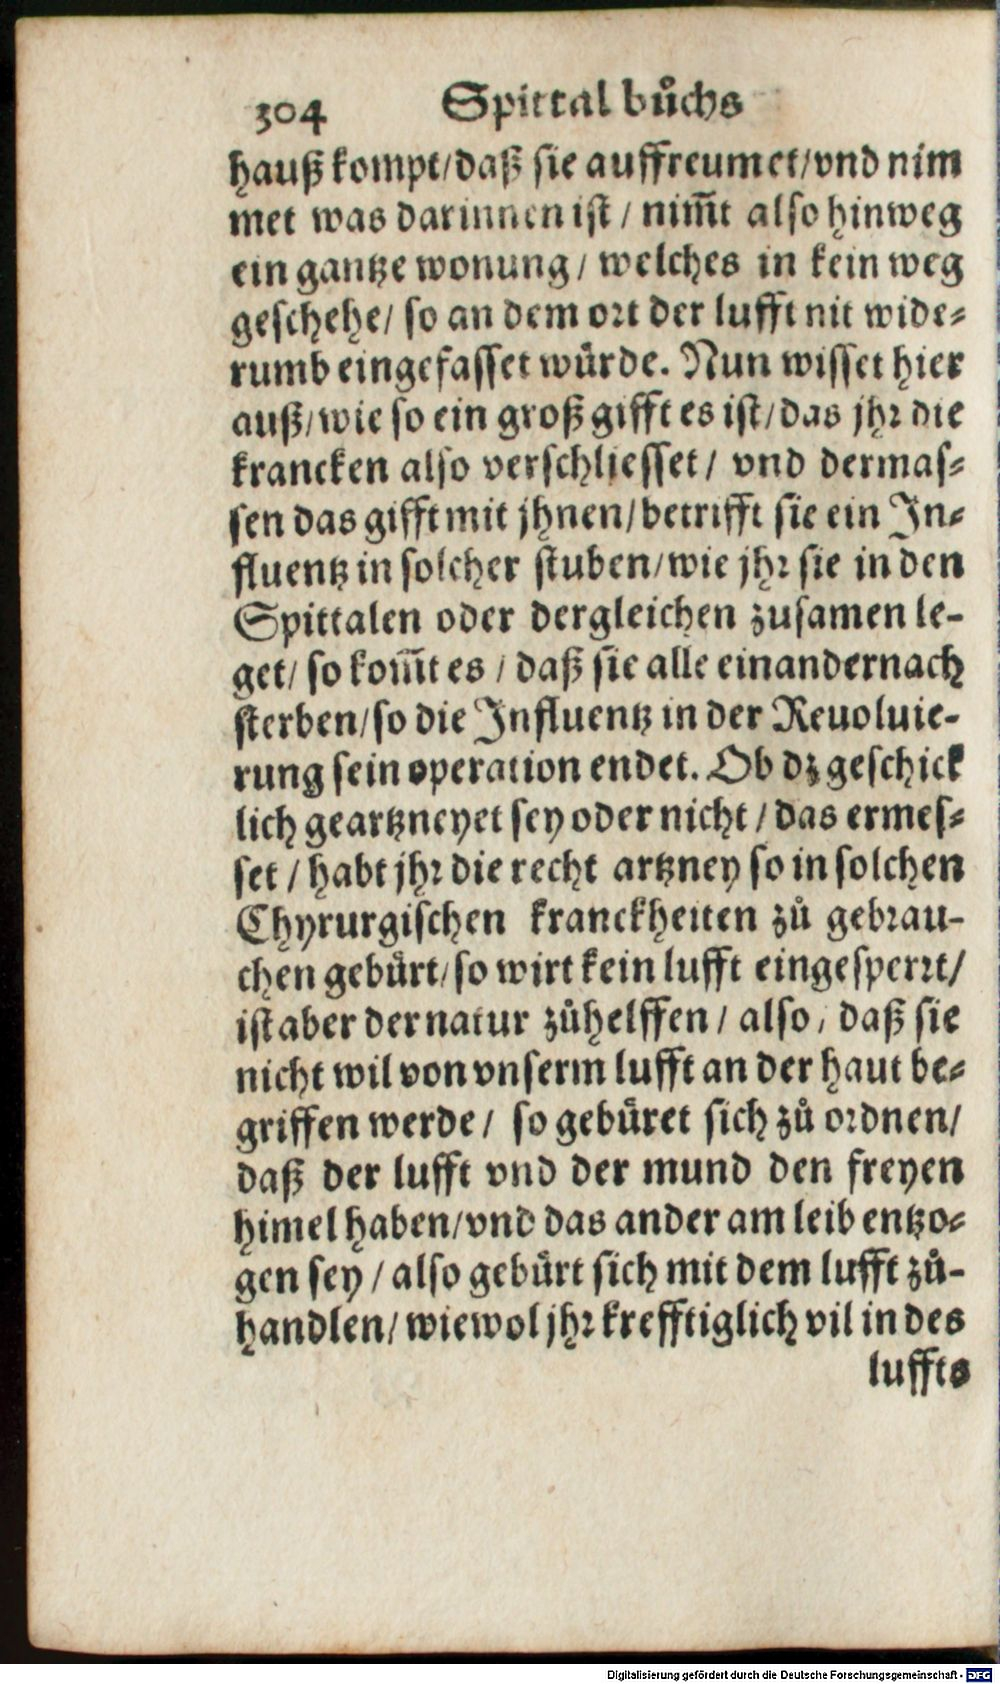 304 Spittal bůchs
hauß kompt/daß sie auffreumet/vnd nim
met was darinnen ist / nim̅t also hinweg
ein gantze wonung/ welches in kein weg
geschehe/ so an dem ort der lufft nit wide-
rumb eingefasset würde. Nun wisset hier
auß/wie so ein groß gifft es ist/das jhr die
krancken also verschliesset/ vnd dermas-
sen das gifft mit jhnen/betrifft sie ein In-
fluentz in solcher stuben/wie jhr sie in den
Spittalen oder dergleichen zusamen le-
get/ so kom̅t es / daß sie alle einandernach
sterben/so die Influentz in der Reuoluie-
rung sein operation endet. Ob dz geschick
lich geartzneyet sey oder nicht / das ermes-
set / habt jhr die recht artzney so in solchen
Chyrurgischen kranckheiten zů gebrau-
chen gebürt/so wirt kein lufft eingesperrt/
ist aber der natur zůhelffen / also, daß sie
nicht wil von vnserm lufft an der haut be-
griffen werde/ so gebüret sich zů ordnen/
daß der lufft vnd der mund den freyen
himel haben/vnd das ander am leib entzo-
gen sey / also gebürt sich mit dem lufft zů-
handlen/ wiewol jhr krefftiglich vil in des
luffts
Digitalisierung gefördert durch die Deutsche Forschungsgemeinschaft - DFG